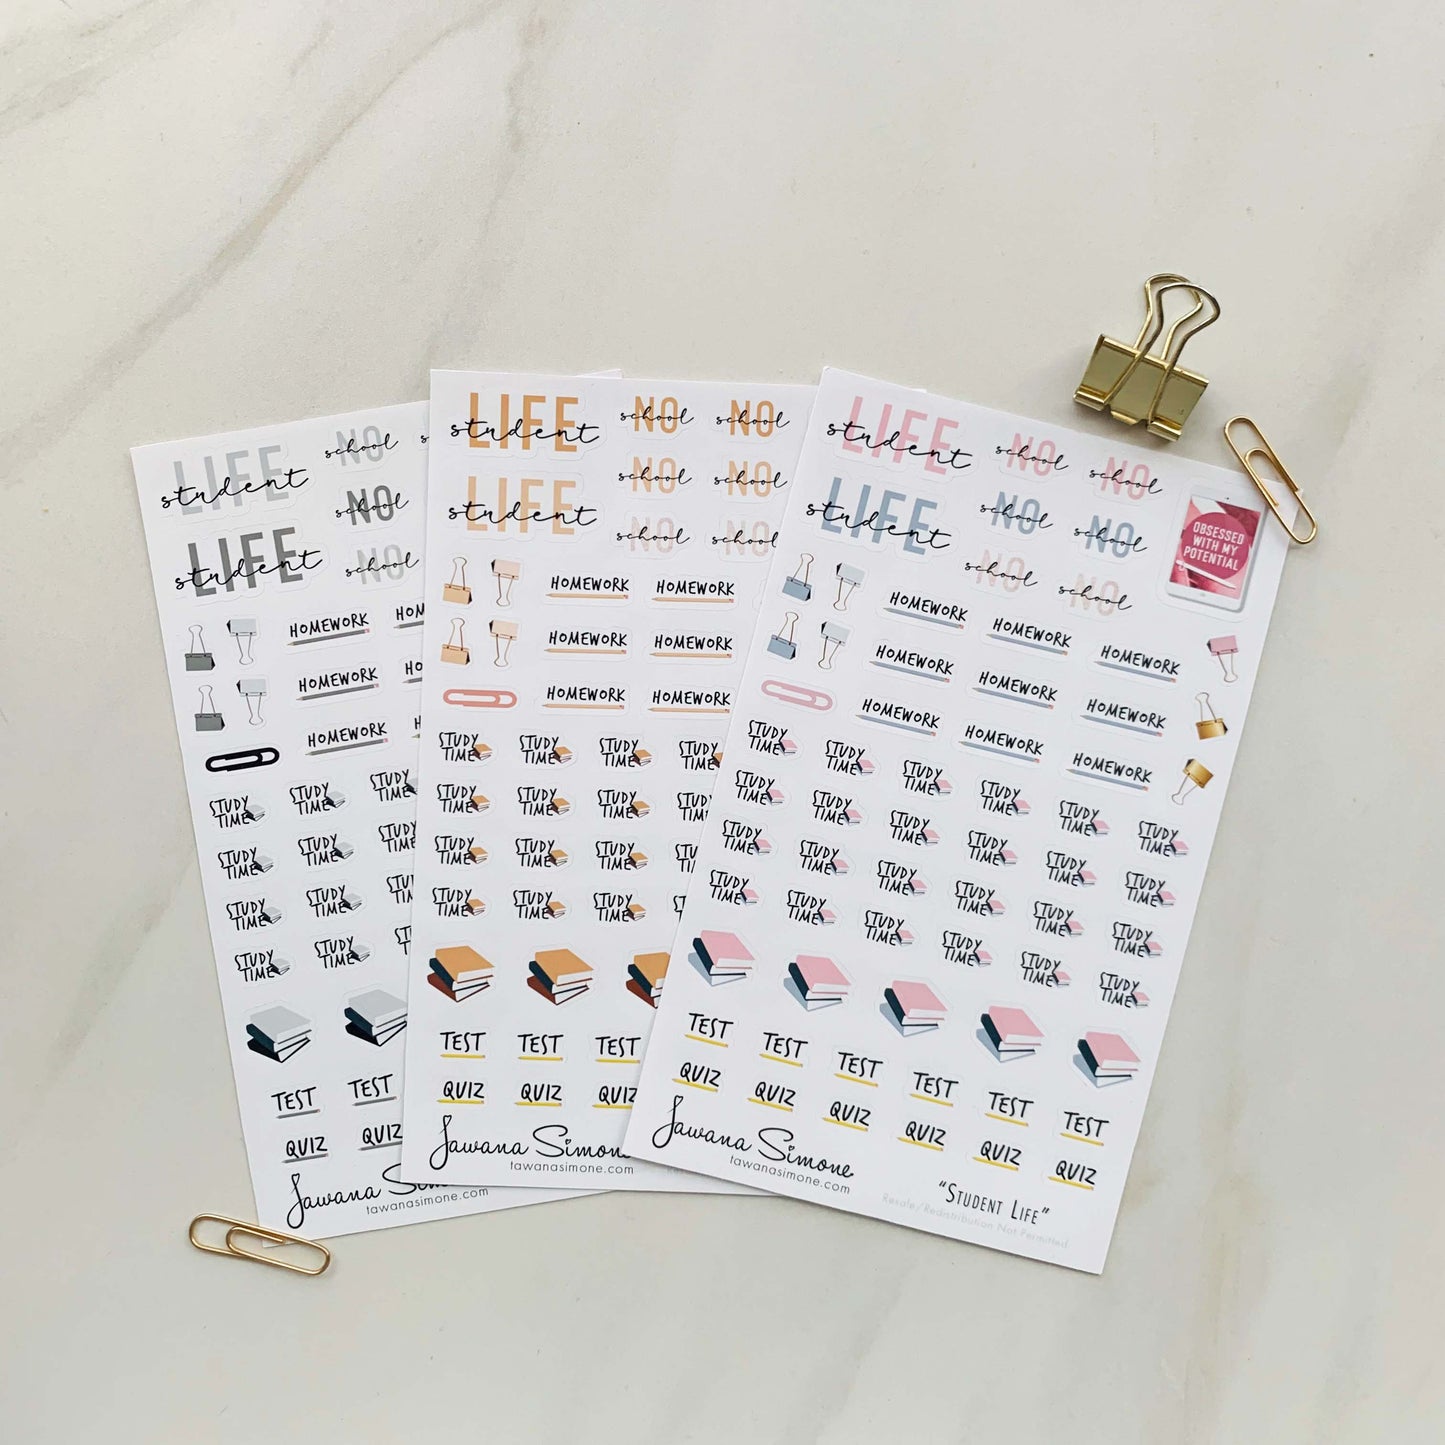 LIFE student NO school
LIFE student NO school
NO school
HOMEWORK
HOMEWORK
HOMEWORK
STUDY TIME STUDY TIME STUDY TIME
STUDY TIME STUDY TIME STUDY TIME
STUDY TIME STUDY TIME
STUDY TIME STUDY TIME
TEST TEST
QUIZ QUIZ
Tawana
tawanasimone.com
LIFE student NO school NO school
LIFE student NO school NO school
NO school NO school
HOMEWORK HOMEWORK
HOMEWORK HOMEWORK
HOMEWORK HOMEWORK
STUDY TIME STUDY TIME STUDY TIME STUDY TIME
STUDY TIME STUDY TIME STUDY TIME
STUDY TIME STUDY TIME STUDY TIME
STUDY TIME STUDY TIME STUDY TIME
TEST TEST TEST
QUIZ QUIZ QUIZ
Tawana Simone
tawanasimone.com
LIFE student NO school NO school
LIFE student NO school NO school
NO school NO school
OBSESSED
WITH MY
POTENTIAL
HOMEWORK HOMEWORK HOMEWORK
HOMEWORK HOMEWORK HOMEWORK
HOMEWORK HOMEWORK HOMEWORK
STUDY TIME STUDY TIME STUDY TIME STUDY TIME STUDY TIME STUDY TIME
STUDY TIME STUDY TIME STUDY TIME STUDY TIME STUDY TIME STUDY TIME
STUDY TIME STUDY TIME STUDY TIME STUDY TIME STUDY TIME STUDY TIME
STUDY TIME STUDY TIME STUDY TIME STUDY TIME STUDY TIME STUDY TIME
TEST TEST TEST TEST TEST TEST
QUIZ QUIZ QUIZ QUIZ QUIZ QUIZ
Tawana Simone
tawanasimone.com
"STUDENT LIFE"
Resale/Redistribution Not Permitted